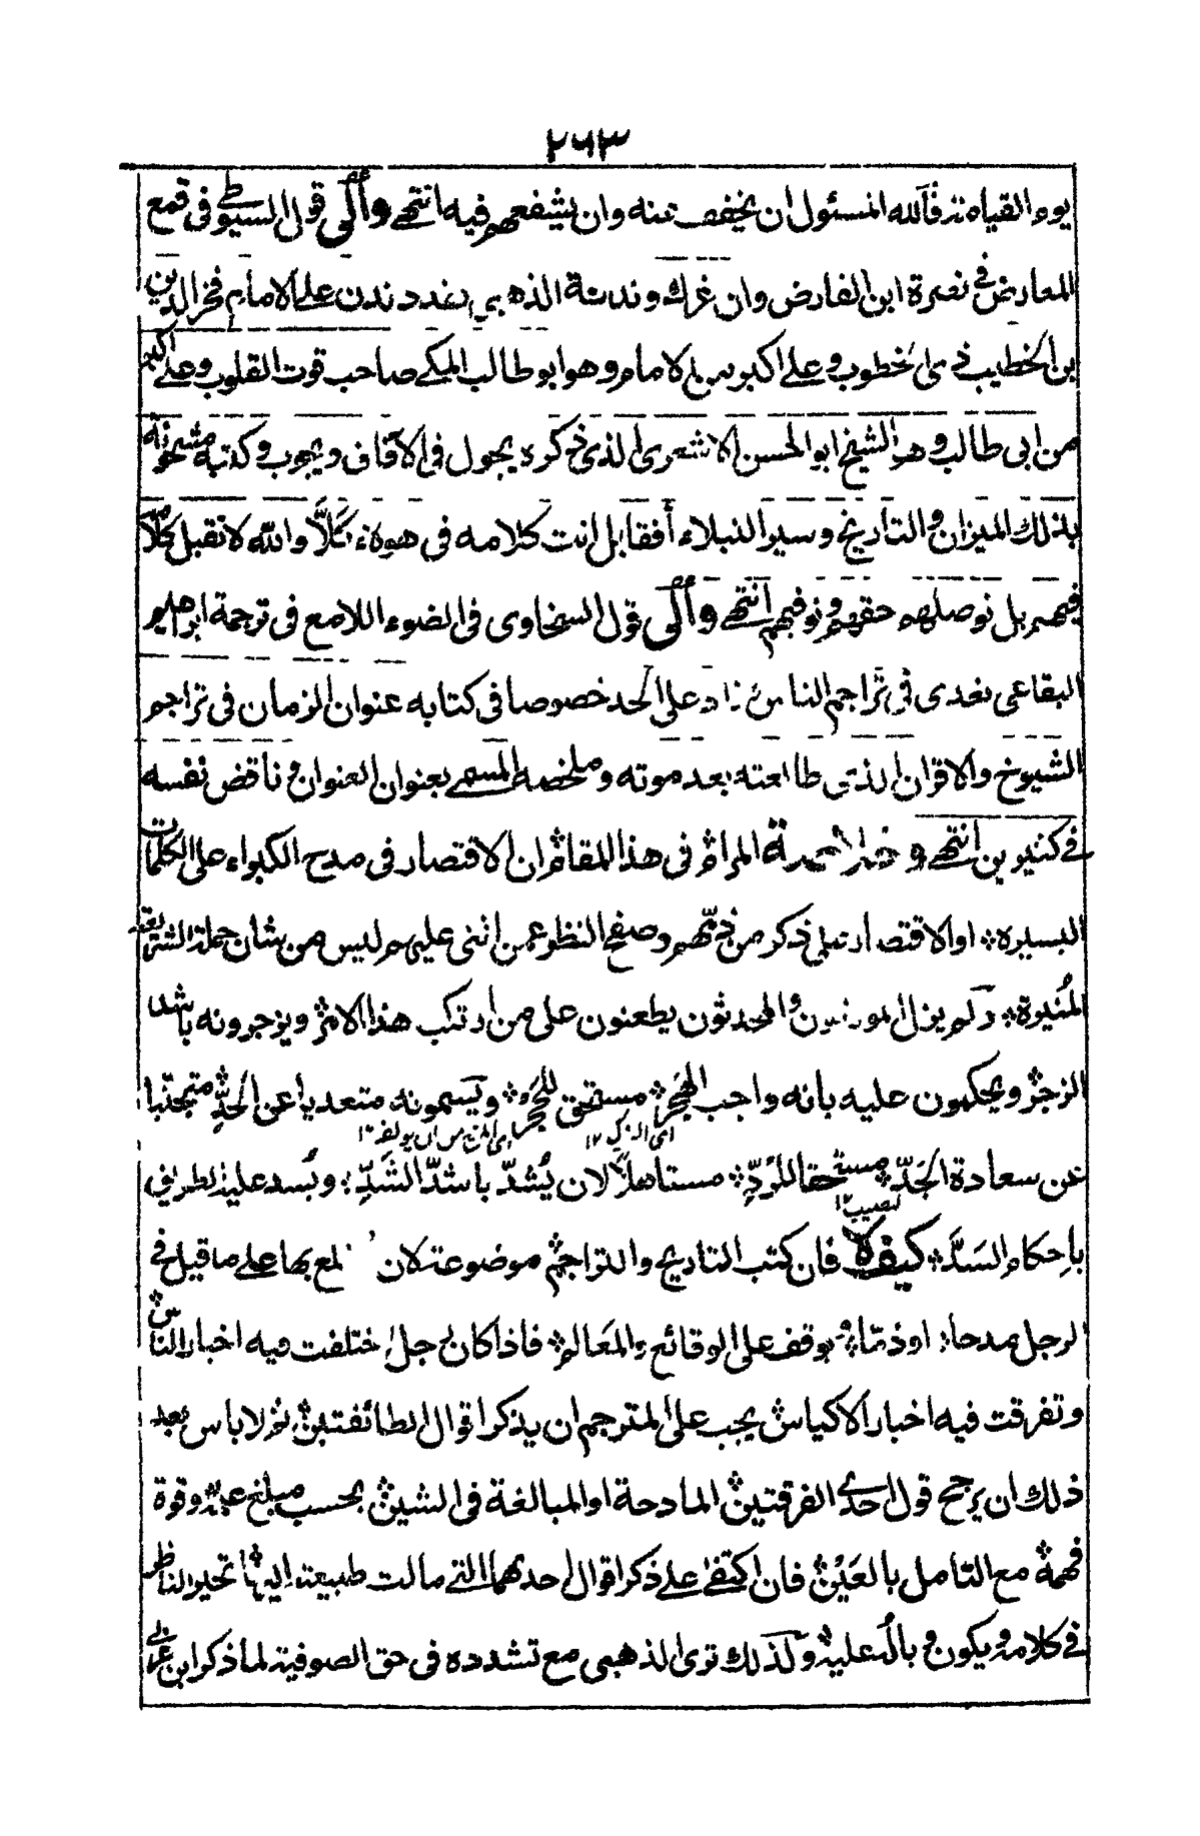 ٢٦٣
يوم القيامة فالله المسئول ان يخفف عنه وان يشفعهم فيه انتهى والى قول السيوطي فى قمع
المعارض فى نصرة ابن الفارض وان غرك دندنة الذهبي فقد دندن على الامام فخر الدين
بن الخطيب ذى الخطوب وعلى اكبر من الامام وهو ابو طالب المكى صاحب قوت القلوب وعلى اكبر
من ابى طالب وهو الشيخ ابو الحسن الاشعرى الذى ذكره يجول فى الآفاق ويجوب وكتبه مشحونة
بذلك الميزان والتاريخ وسير النبلاء أفقابل انت كلامه فى هؤلاء كَلاَّ والله لا نقبل كلامه
فيهم بل نوصلهم حقهم ونوفيهم انتهى والى قول السخاوى فى الضوء اللامع فى ترجمة ابراهيم
البقاعى تعدى فى تراجم الناس زاد على الحد خصوصا فى كتابه عنوان الزمان فى تراجم
الشيوخ والاقران الذى طالعته بعد موته وملخصه المسمى بعنوان العنوان وناقض نفسه
فى كثيرين انتهى وخلاصة المرام فى هذا المقام ان الاقتصار فى مدح الكبراء على الكلمات
اليسيرة او الاقتصار على ذكر من ذمّهم وصفح النظر عمن اثنى عليهم ليس من شان حملة الشريعة
المُنيرة ولم يزل المورخون والمحدثون يطعنون على من ارتكب هذا الامر ويزجرونه باشد
الزجر ويحكمون عليه بانه واجب الهَجر مستحق للحَجر ويسمونه متعديا عن الحَدّ متجنبا
اى الترك ١٢ اى المنع من ان يولف ١٢
عن سعادة الجَدّ مستحقا للرَّدِّ مستاهلاً لان يُشدّ باشدّ الشَّدِّ ويُسد عليه الطريق
نصيب ١٢
باِحكام السَدِّ كيف لا فان كتب التاريخ والتراجم موضوعة لان يطلع بها على ما قيل فى
الرجل مدحا او ذمّا ويوقف على الوقائع والمَعالم فاذا كان رجل اختلفت فيه اخبار الناس
وتفرقت فيه اخبار الاكياس يجب على المترجم ان يذكر اقوال الطائفتين ثم لا باس بعد
ذلك ان يرجح قول احدى الفرقتين المادحة او المبالغة فى الشين بحسب مبلغ علمه وقوة
فهمه مع التامل بالعَيْن فان اكتفى على ذكر اقوال احدهما التى مالت طبيعته اليها تحير الناظر
فى كلامه ويكون وبالا عليه وكذلك ترى الذهبى مع تشدده فى حق الصوفية لما ذكر ابن عربى